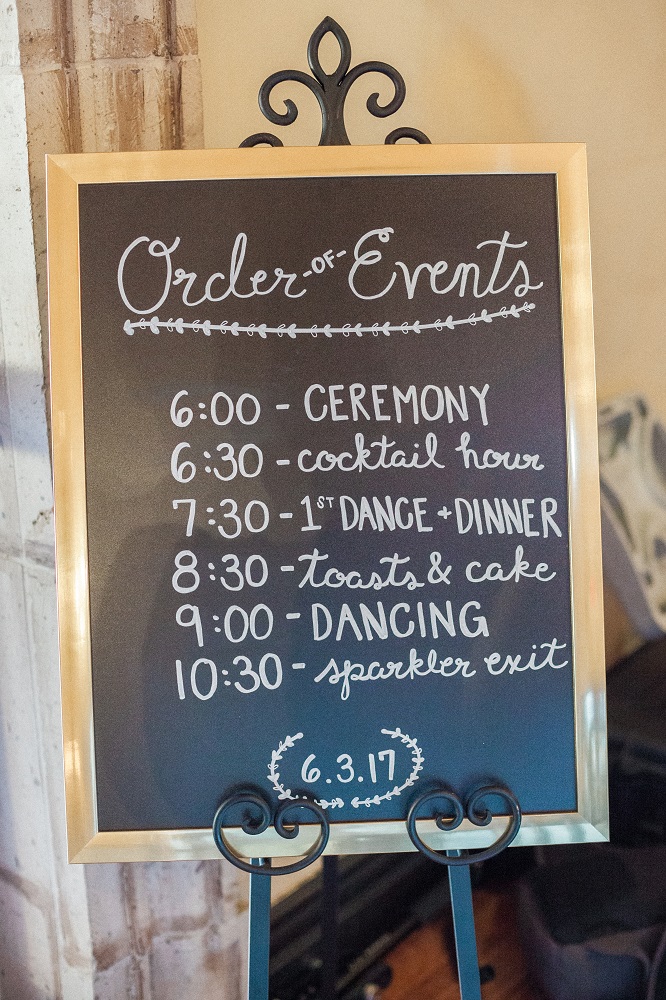 Order -OF- Events
6:00 - CEREMONY
6:30 - cocktail hour
7:30 - 1ST DANCE + DINNER
8:30 - toasts & cake
9:00 - DANCING
10:30 - sparkler exit
6.3.17